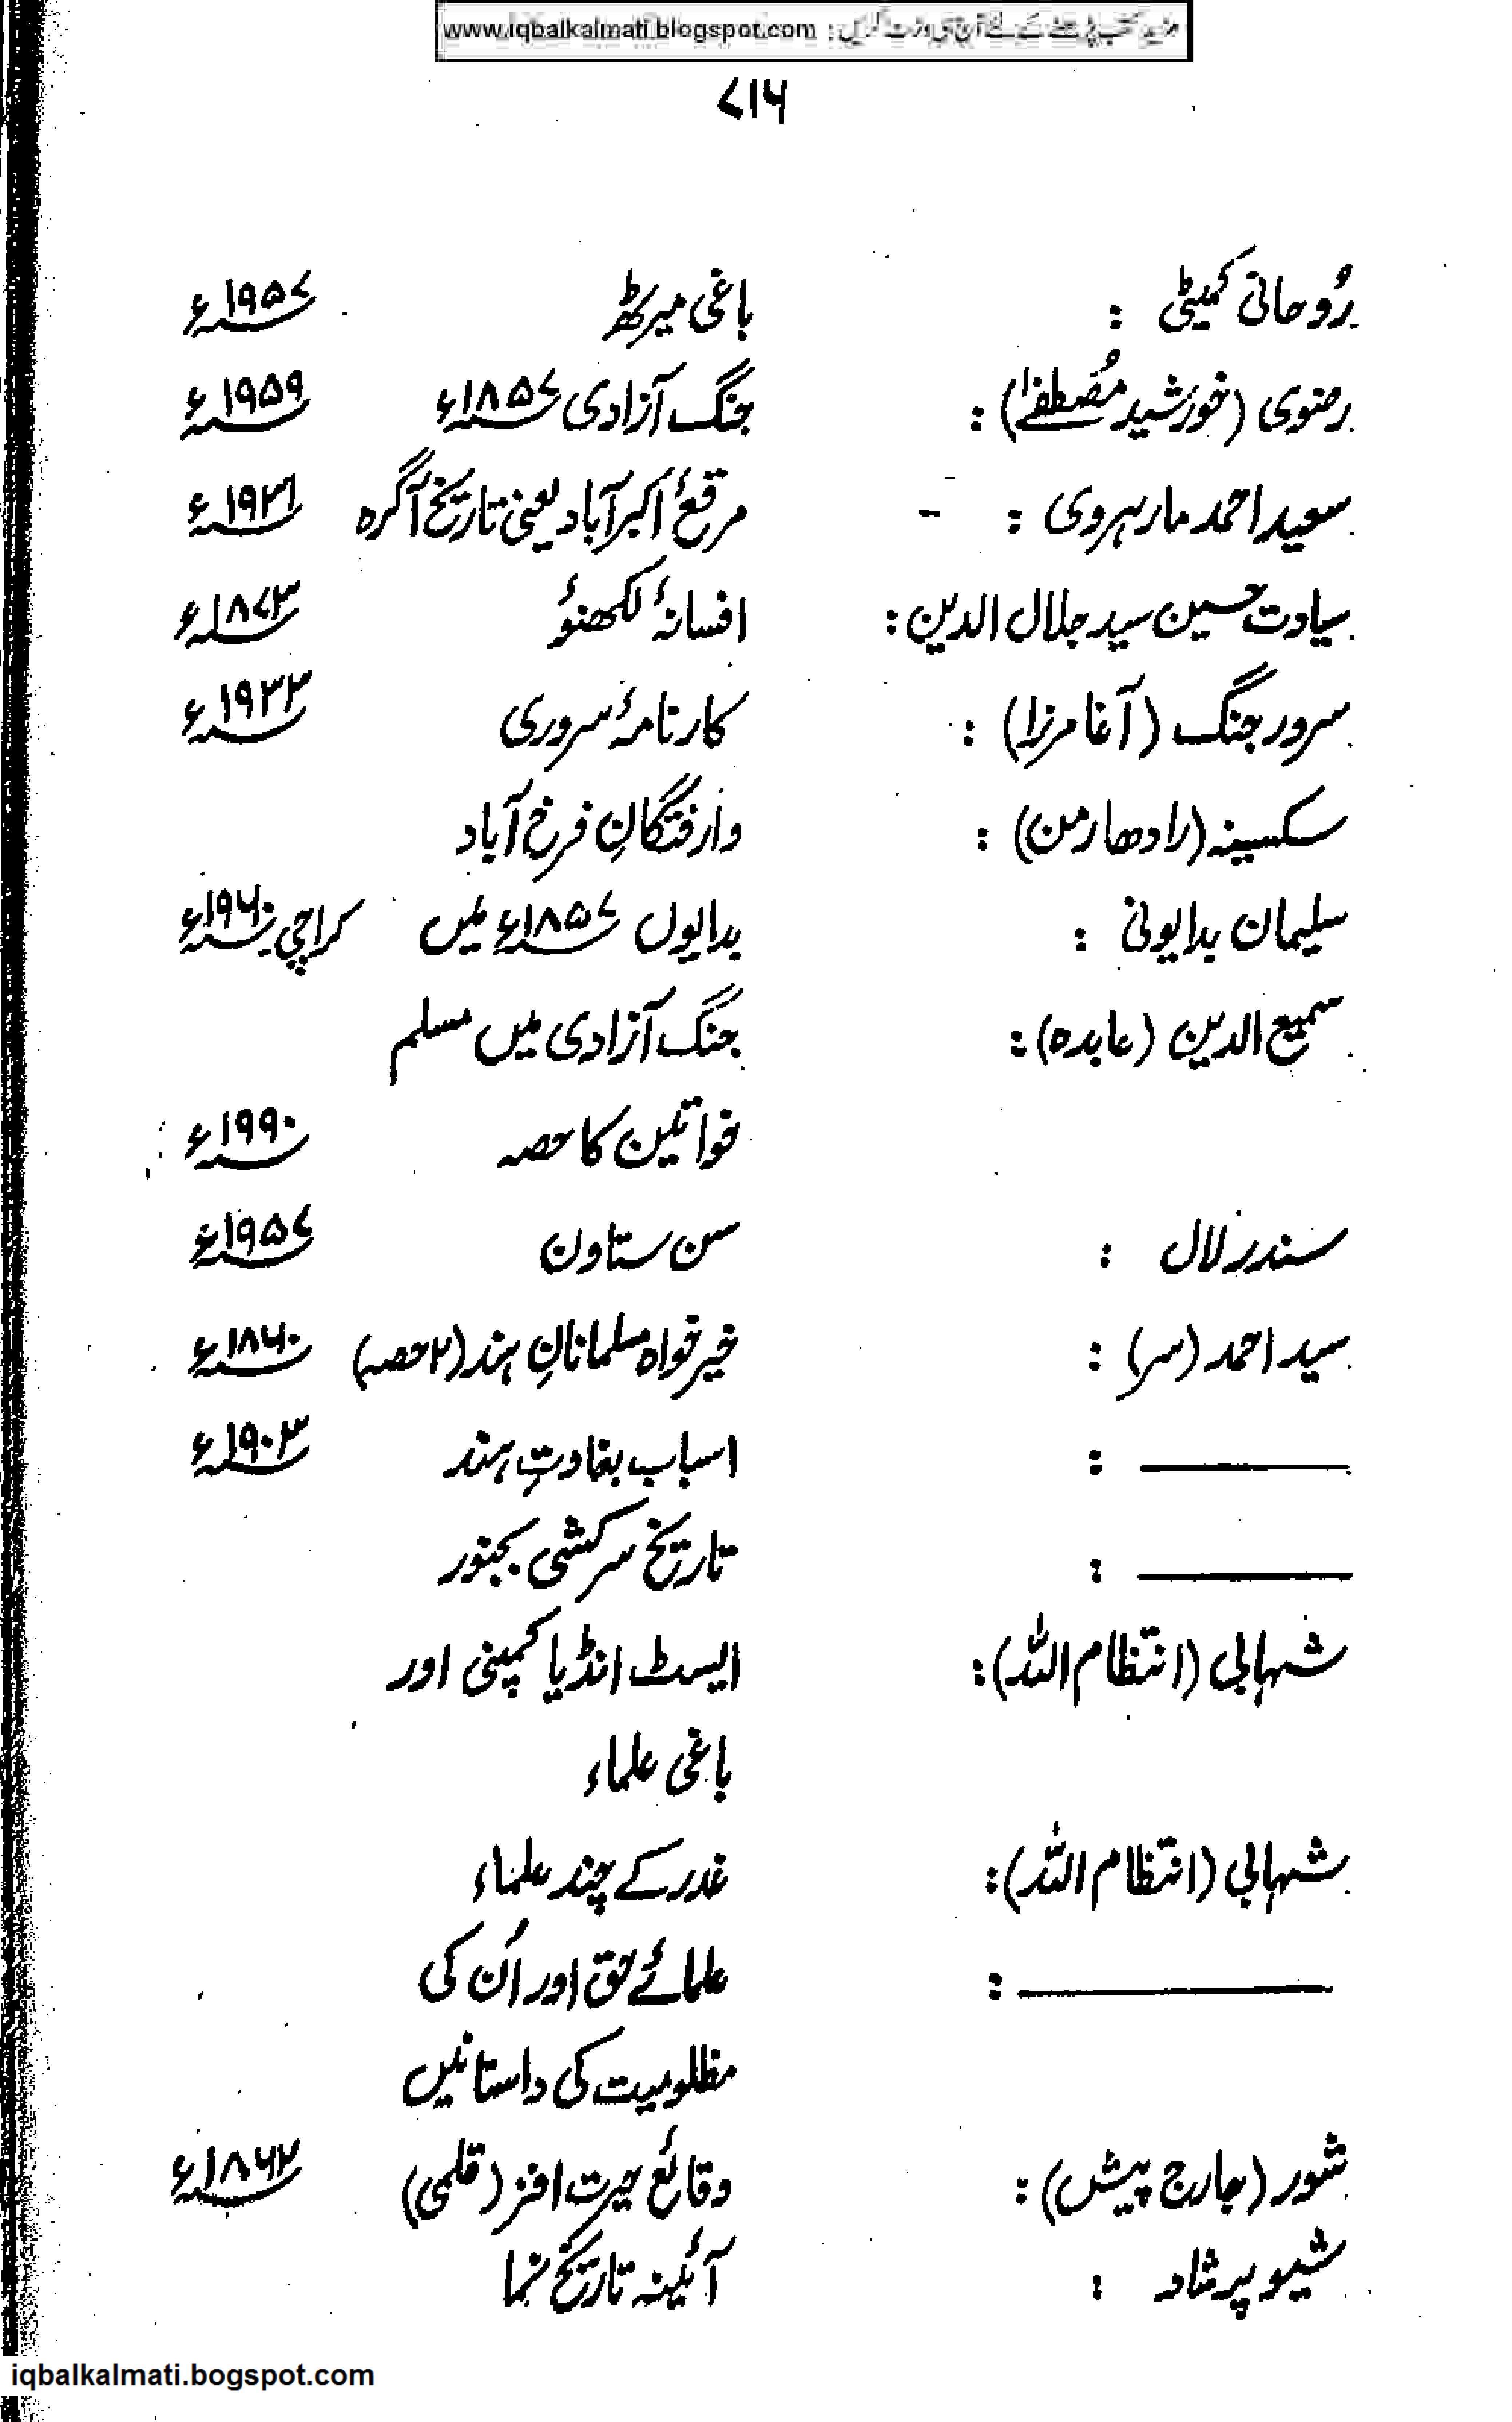 مزید کتب پڑھنے کے لئے آج ہی وزٹ کریں : www.iqbalkalmati.blogspot.com
۷۱۶
رُوحانی کمیٹی : باغی میرٹھ ۱۹۵۷ء
رضوی (خورشید مُصطفےٰ) : جنگ آزادی ۱۸۵۷ء ۱۹۵۹ء
سعید احمد مارہروی : - مرقعٔ اکبرآباد یعنی تاریخ آگرہ ۱۹۳۱ء
سیادت حسین سید جلال الدین : افسانۂ لکھنؤ ۱۸۷۳ء
سرور جنگ (آغا مرزا) : کارنامۂ سروری ۱۹۳۳ء
سکسینہ (رادھا رمن) : وارفتگانِ فرخ آباد
سلیمان بدایونی : بدایوں ۱۸۵۷ء میں کراچی ۱۹۶۰ء
سمیع الدین (عابدہ) : جنگ آزادی میں مسلم
خواتین کا حصہ ۱۹۹۰ء
سندر لال : سن ستاون ۱۹۵۷ء
سید احمد (سر) : خیر خواہ مسلمانانِ ہند (۲ حصہ) ۱۸۶۰ء
——— : اسباب بغاوتِ ہند ۱۹۰۳ء
——— : تاریخ سرکشی بجنور
شہابی (انتظام اللہ) : ایسٹ انڈیا کمپنی اور
باغی علماء
شہابی (انتظام اللہ) : غدر کے چند علماء
——— : علمائے حق اور اُن کی
مظلومیت کی داستانیں
شور (جارج پیش) : وقائع حیرت افز (قلمی) ۱۸۶۲ء
شیو پرشاد : آئینہ تاریخ نما
iqbalkalmati.bogspot.com